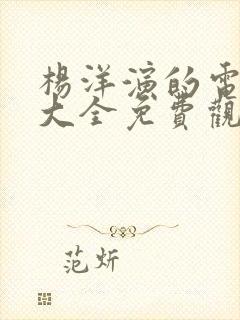 楊洋演的電
大全免費觀
范炘